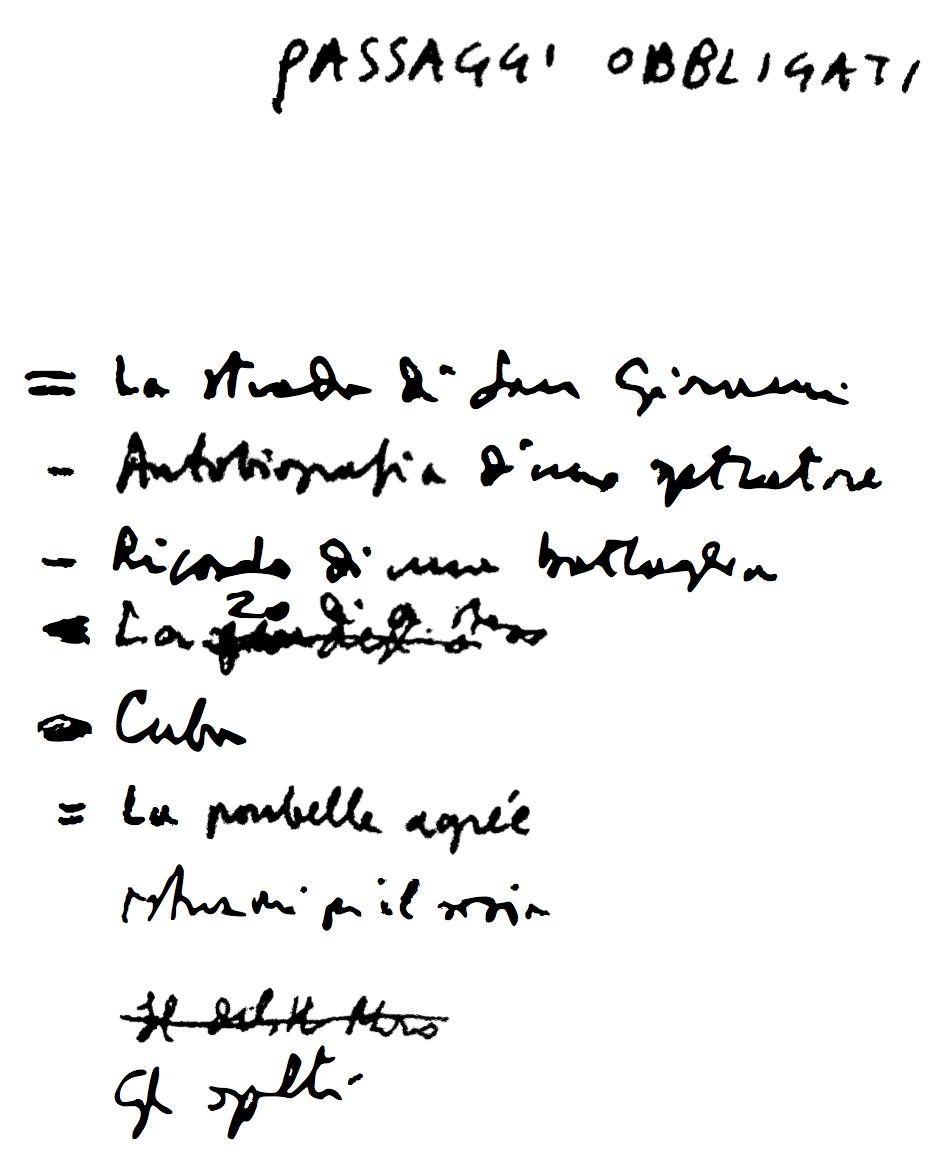 PASSAGGI OBBLIGATI
= La strada di San Giovanni
- Autobiografia d'uno spettatore
- Ricordo di una battaglia
La
Cuba
= La poubelle agréée
istruzioni per il sosia
Il delitto Moro
Gli oggetti